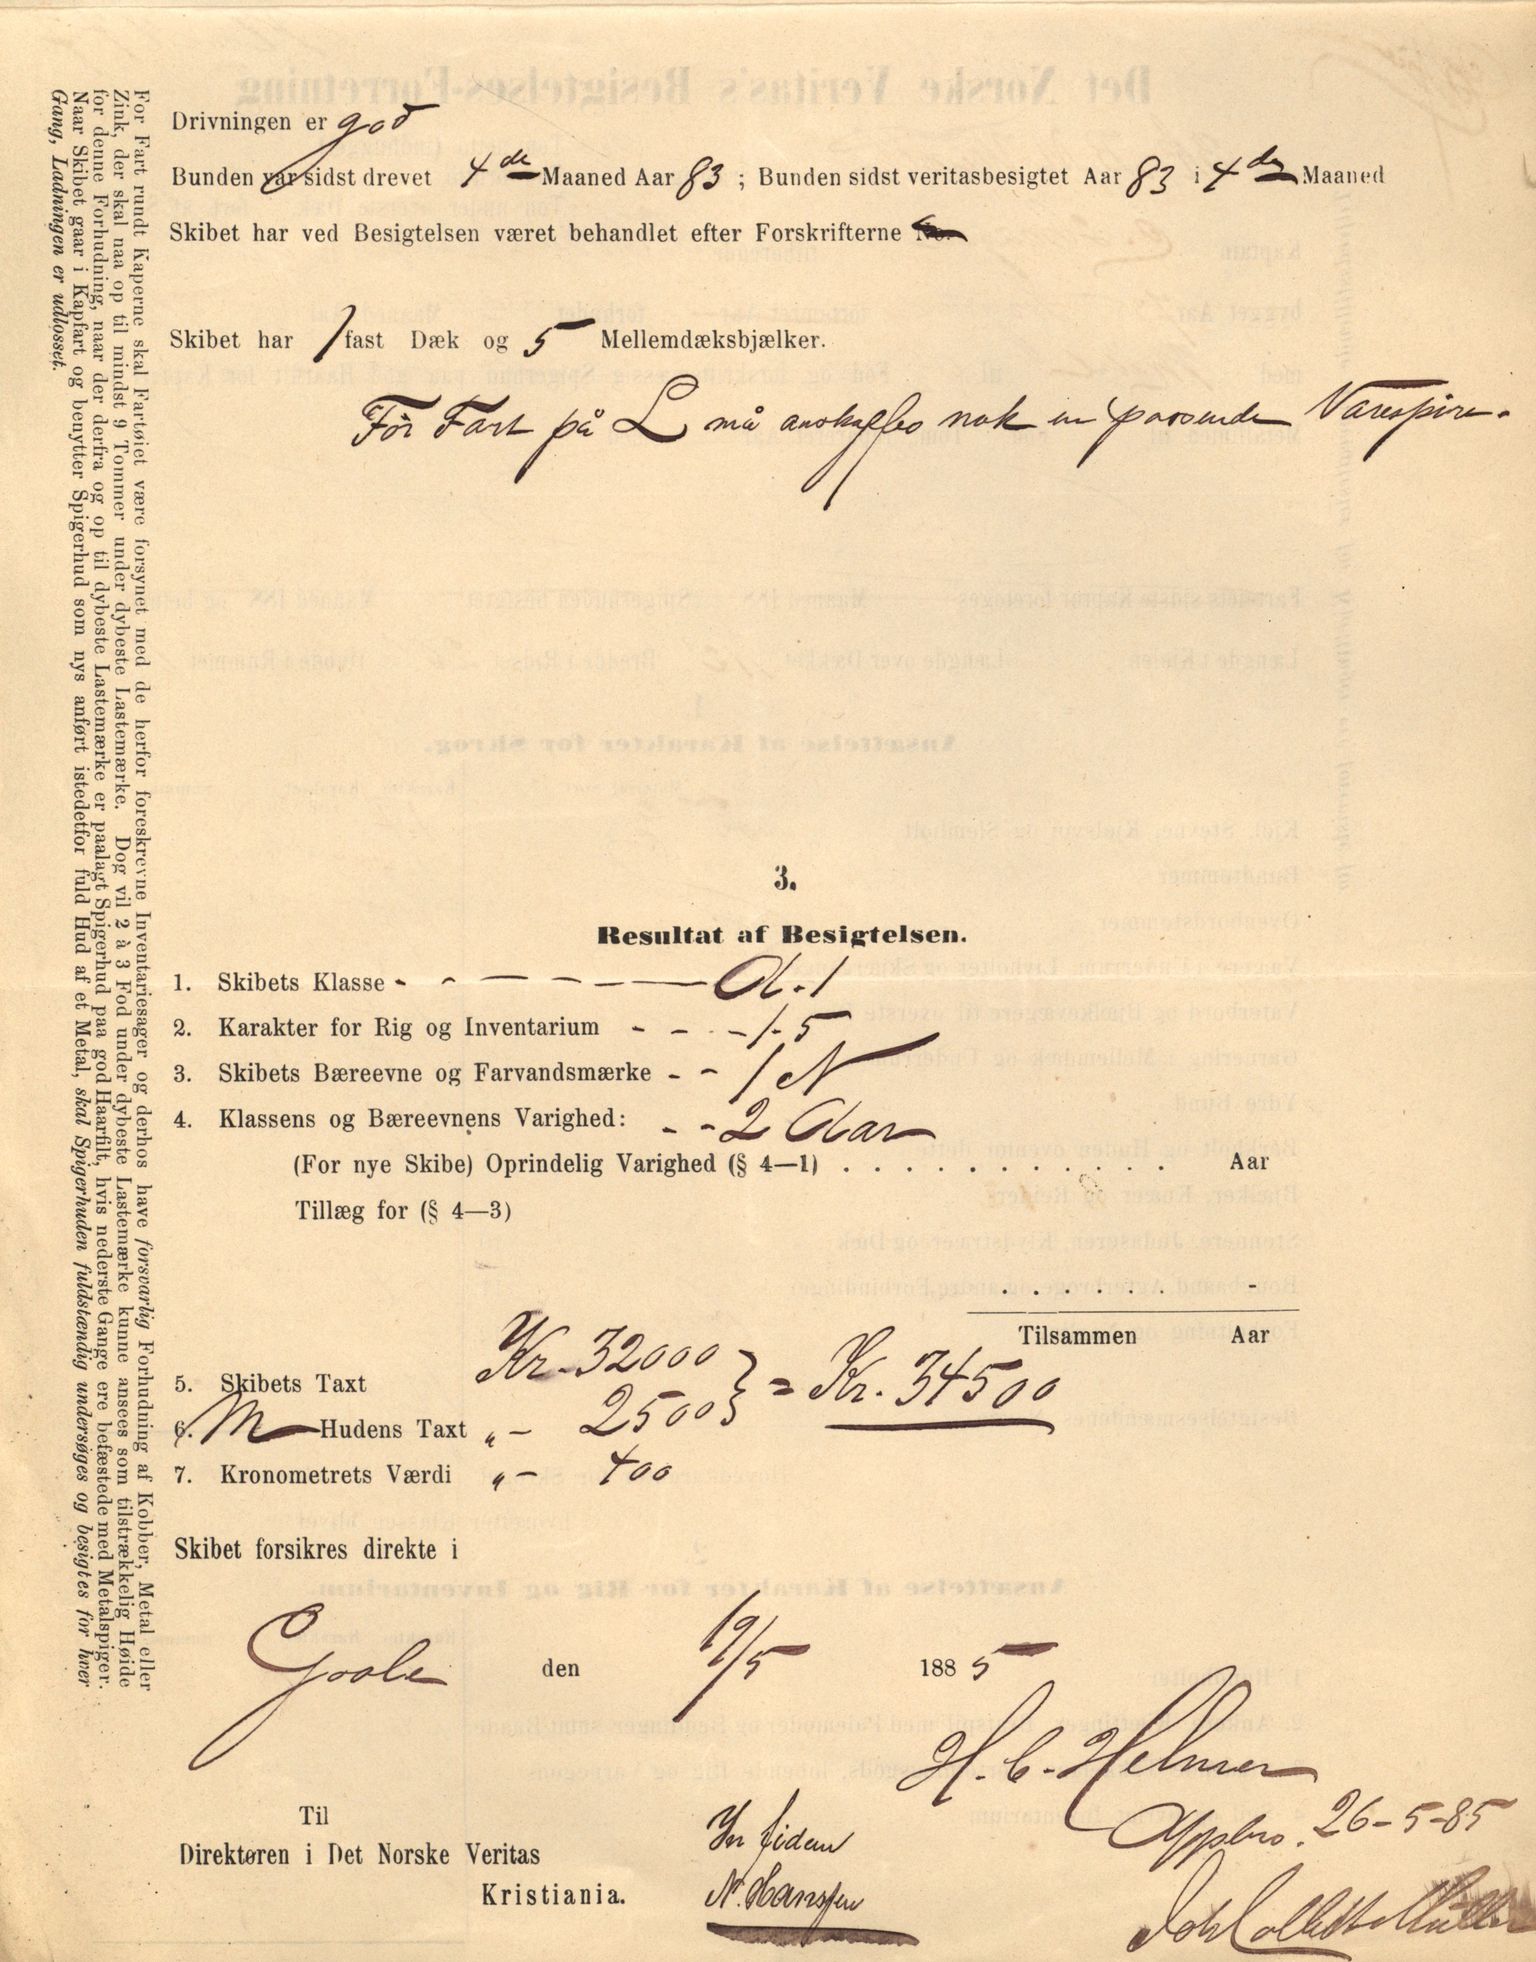 Drivningen er god
Bunden var sidst drevet 4de Maaned Aar 83 ; Bunden sidst veritasbesigtet Aar 83 i 4de Maaned
Skibet har ved Besigtelsen været behandlet efter Forskrifterne No.
Skibet har 1 fast Dæk og 5 Mellemdæksbjælker.
För Fart på L må anskaffes nok en passende Varespire.
3.
Resultat af Besigtelsen.
1. Skibets Klasse - - - - - A.1
2. Karakter for Rig og Inventarium - - - 1.5
3. Skibets Bæreevne og Farvandsmærke - - 1 N
4. Klassens og Bæreevnens Varighed: - - 2 Aar
(For nye Skibe) Oprindelig Varighed (§ 4—1) . . . . . . . . . . . . Aar
Tillæg for (§ 4—3)
. . . . . . . -
Tilsammen Aar
5. Skibets Taxt Kr. 32000 } = Kr. 34500
6. M Hudens Taxt „ - 2500
7. Kronometrets Værdi „ - 400
Skibet forsikres direkte i
Goole den 19/5 1885
H. C. Helmer
Til
Direktøren i Det Norske Veritas
Kristiania.
In fidem
N. Hanssen
Appbro. 26-5-85
Joh Collett Müller
For Fart rundt Kaperne skal Fartøiet være forsynet med de herfor foreskrevne Inventariesager og derhos have forsvarlig Forhudning af Kobber, Metal eller
Zink, der skal naa op til mindst 9 Tommer under dybeste Lastemærke. Dog vil 2 à 3 Fod under dybeste Lastemærke kunne ansees som tilstrækkelig Høide
for denne Forhudning, naar der derfra og op til dybeste Lastemærke er paalagt Spigerhud paa god Haarfilt, hvis nederste Gange ere befæstede med Metalspiger.
Naar Skibet gaar i Kapfart og benytter Spigerhud som nys anført istedetfor fuld Hud af et Metal, skal Spigerhuden fuldstændig undersøges og besigtes for hver
Gang, Ladningen er udlosset.